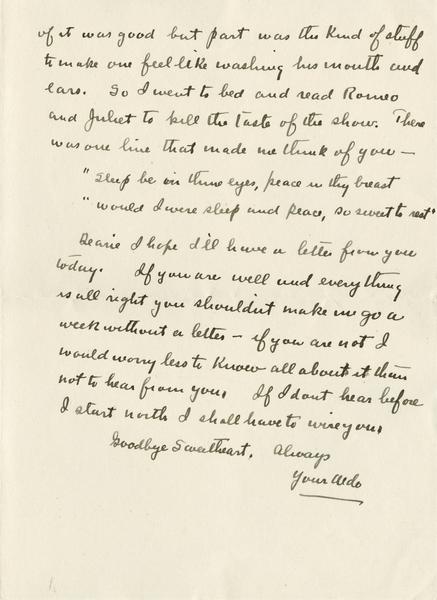 of it was good but part was the kind of stuff
to make one feel like washing his mouth and
ears. So I went to bed and read Romeo
and Juliet to kill the taste of the show. There
was one line that made me think of you —
"Sleep be in thine eyes, peace in thy breast
"would I were sleep and peace, so sweet to rest"
Dearie I hope I'll have a letter from you
today. If you are well and everything
is all right you shouldn't make me go a
week without a letter — if you are not I
would worry less to know all about it than
not to hear from you. If I dont hear before
I start north I shall have to wire you.
Goodbye Sweetheart. Always
Your Aldo